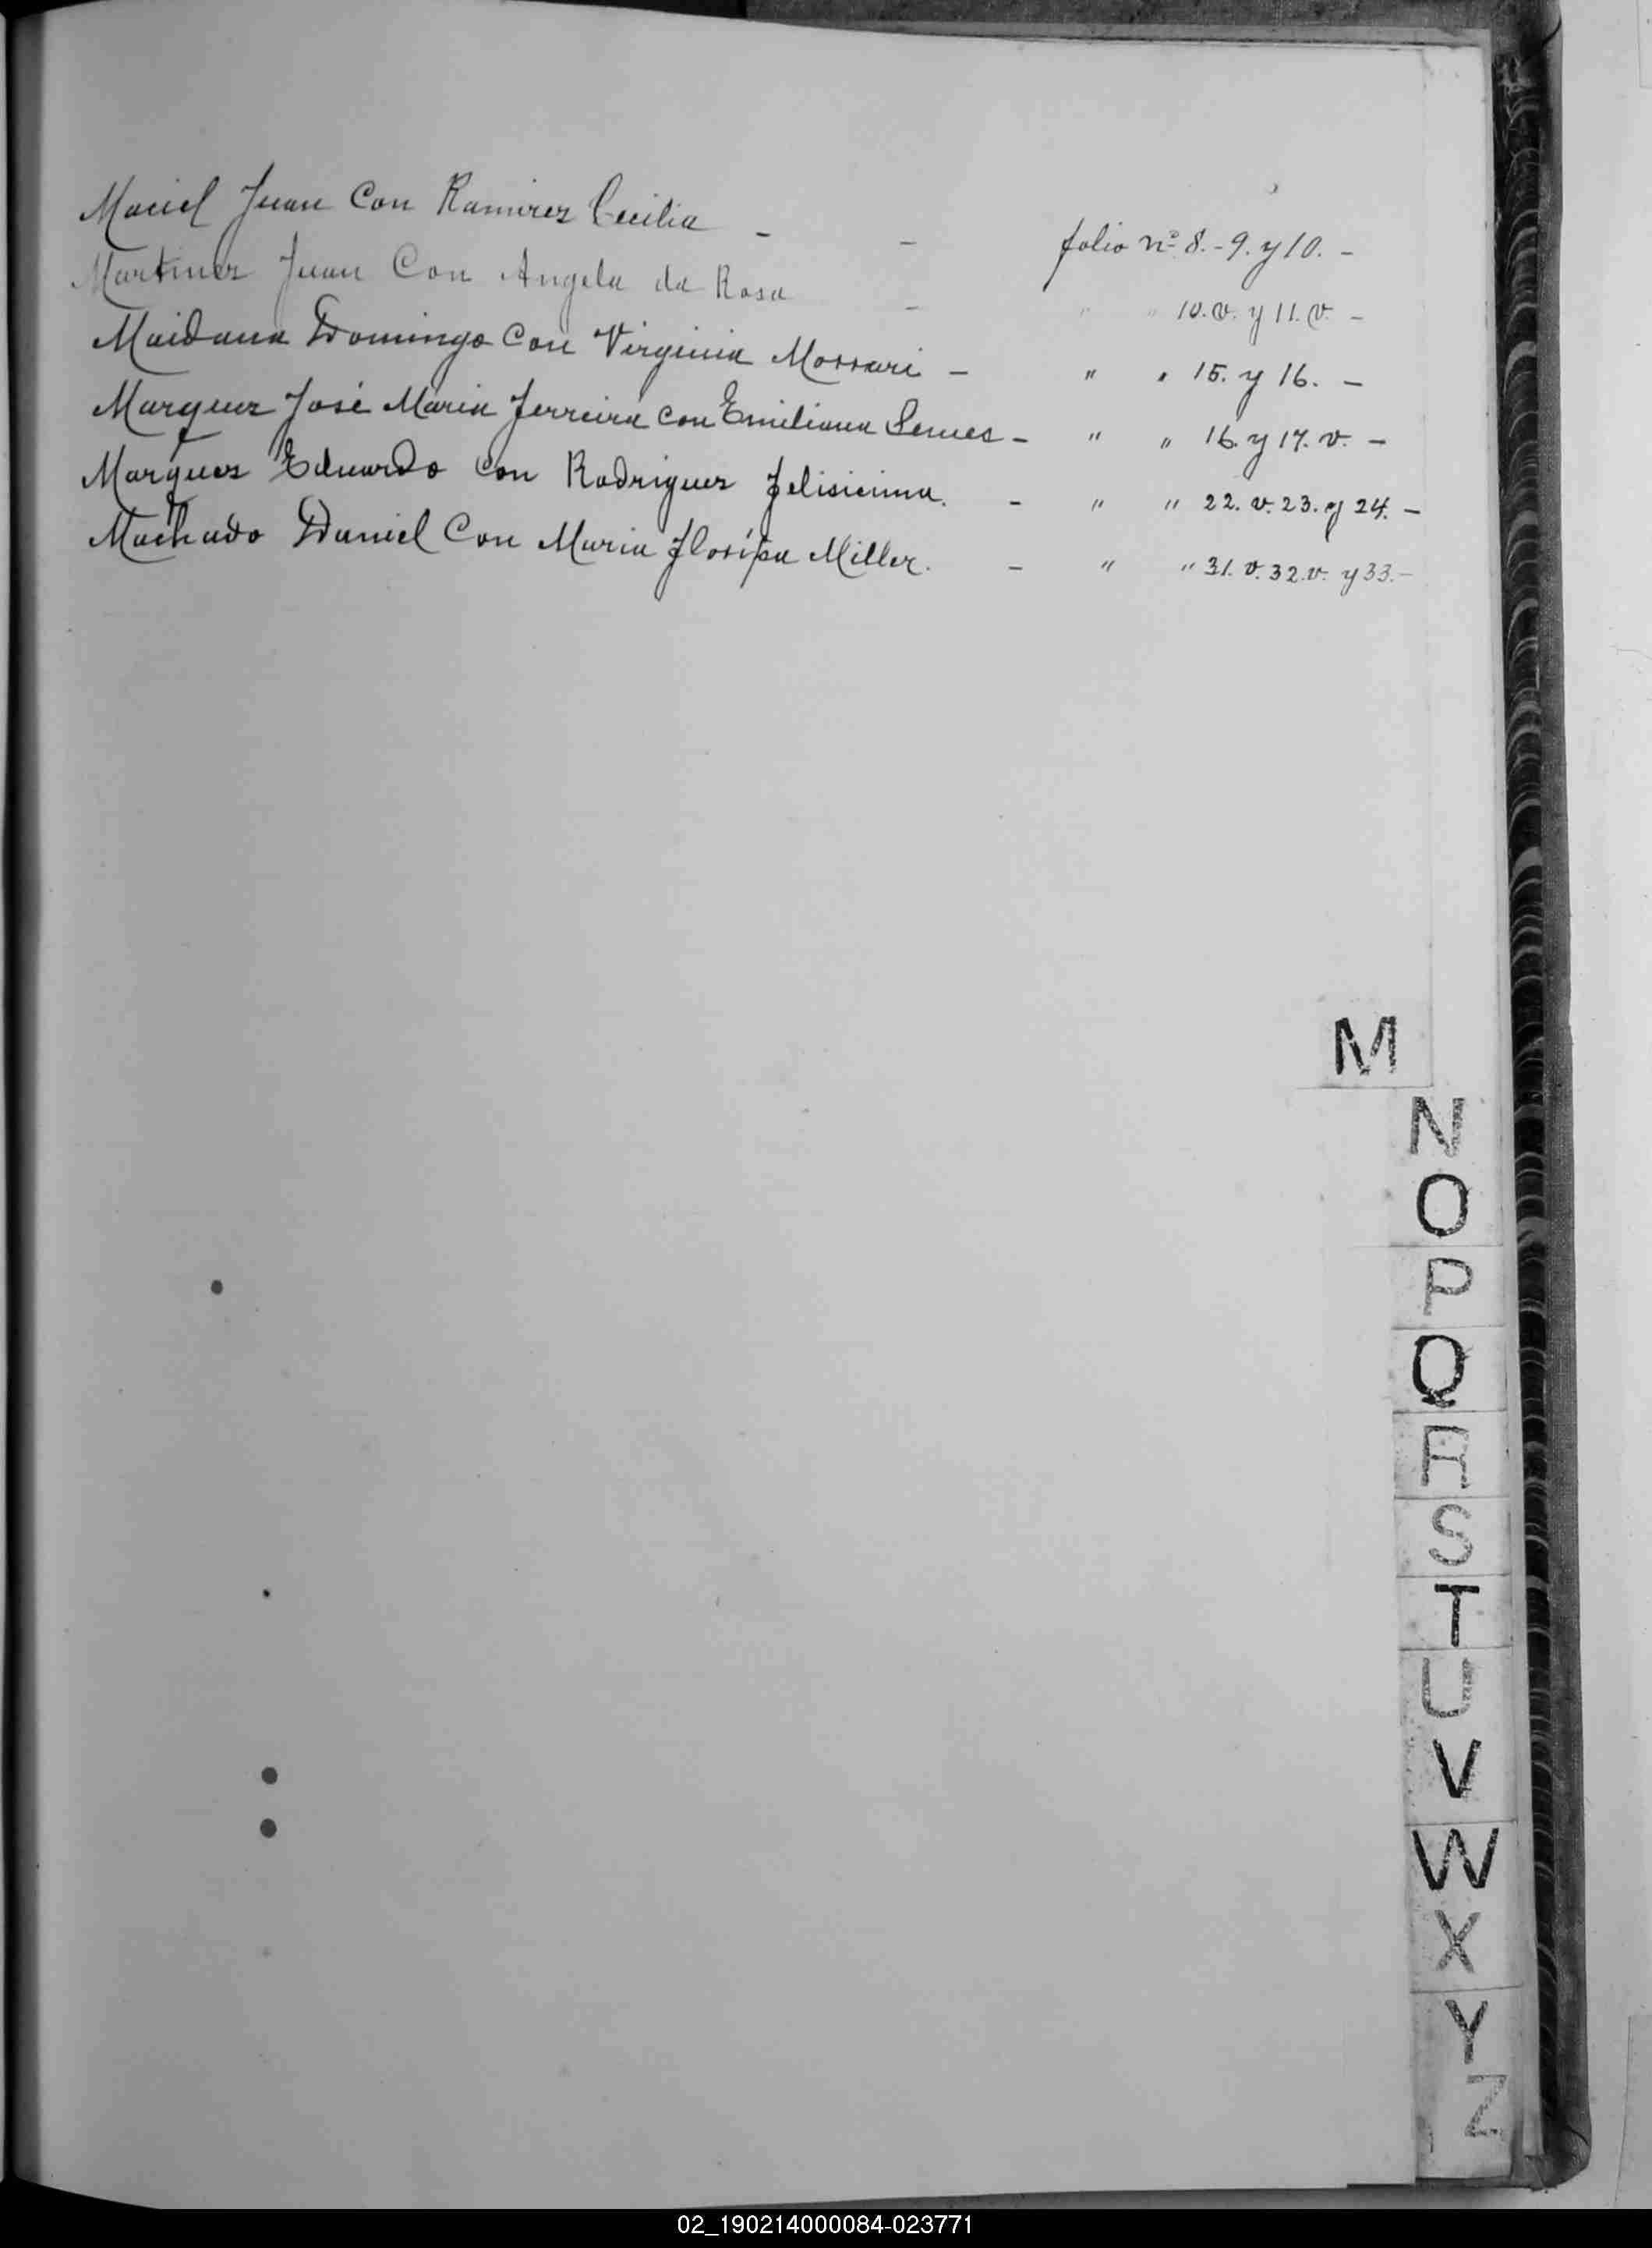 Maciel Juan Con Ramirez Cecilia - - folio nº 8.-9. y 10. -
Martinez Juan Con Angela da Rosa - " " 10.v. y 11.v. -
Maidana Domingo Con Virginia - " " 15. y 16. -
Marquez José Maria Ferreira con Emiliana - " " 16. y 17. v. -
Marques Eduardo Con Rodriguez Felisicima. - " " 22. v. 23. y 24. -
Machado Daniel Con Maria Floripa Miller. - " " 31. v. 32.v. y 33.-
M
N
O
P
Q
R
S
T
U
V
W
X
Y
Z
02_190214000084-023771